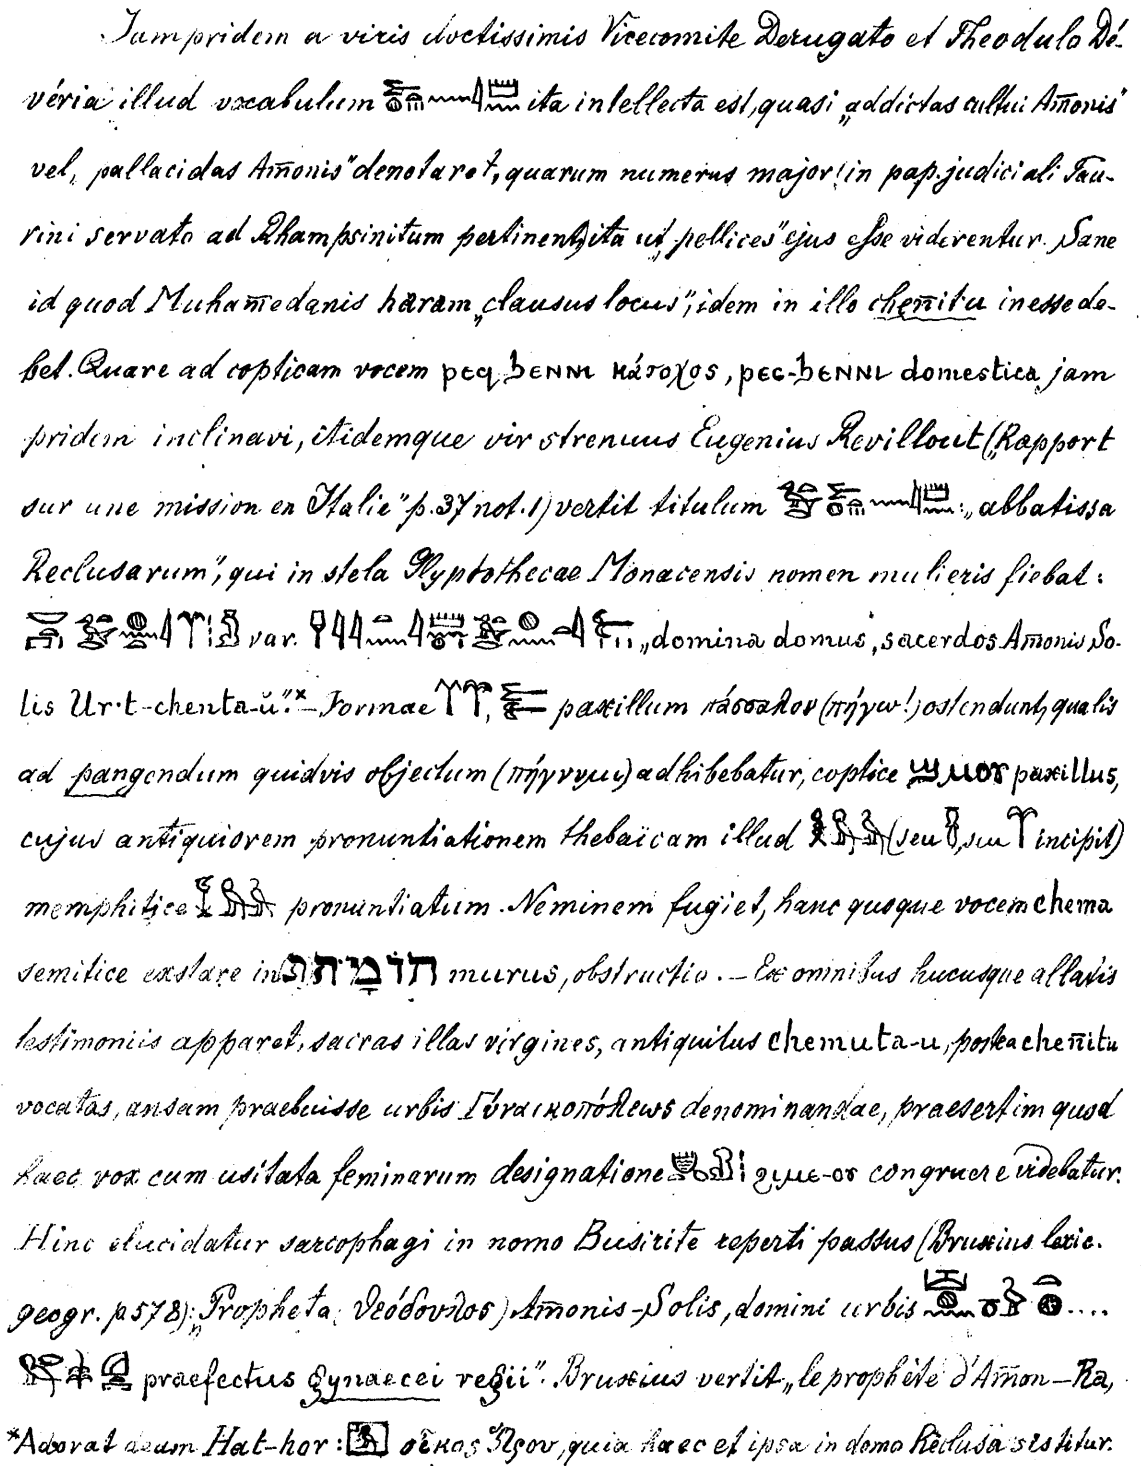 Jam pridem a viris doctissimis Vicecomite Derugato et Theodulo Dé-
véria illud vocabulum ita intellecta est, quasi „addictas cultui Am̅onis"
vel „pallacidas Am̅onis" denotaret, quarum numerus major in pap. judiciali Tau-
rini servato ad Rhampsinitum pertinent, ita ut „pellices" ejus esse viderentur. Sane
id quod Muham̅edanis haram „clausus locus", idem in illo chen̅itu inesse de-
bet. Quare ad copticam vocem ⲣⲉϥϧⲉⲛⲛⲓ κάτοχος, ⲣⲉϭ-ϧⲉⲛⲛⲓ domestica jam
pridem inclinavi, itidemque vir strenuus Eugenius Revillout („Rapport
sur une mission en Italie" p. 37 not. 1) vertit titulum : „abbatissa
Reclusarum", qui in stela Glyptothecae Monacensis nomen mulieris fiebat:
var. „domina domus, sacerdos Am̅onis So-
lis Ur·t-chenta-ŭ".* — Formae , paxillum πάσσαλον (πήγω!) ostendunt, qualis
ad pangendum quidvis objectum (πήγνυμι) adhibebatur, coptice ϣⲙⲟⲩ paxillus,
cujus antiquiorem pronuntiationem thebaïcam illud (seu , seu incipit)
memphitice pronuntiatum. Neminem fugiet, hanc quoque vocem chema
semitice exstare in murus, obstructio. — Ex omnibus hucusque allatis
testimoniis apparet, sacras illas virgines, antiquitus chemuta-u, postea chen̅itu
vocatas, ansam praebuisse urbis Γύναικοπόλεως denominandae, praesertim quod
haec vox cum usitata feminarum designatione ϩⲓⲙⲉ-ⲟⲩ congruere videbatur.
Hinc elucidatur sarcophagi in nomo Busirite reperti passus (Bruxius lexic.
geogr. p. 578): „Propheta (θεόδουλος) Am̅onis-Solis, domini urbis ....
praefectus gynaecei regii". Bruxius vertit „le prophète d'Am̅on-Ra,
*Adorat deam Hat-hor: οἶκος Ὥρου, quia haec et ipsa in domo Reclusa sistitur.